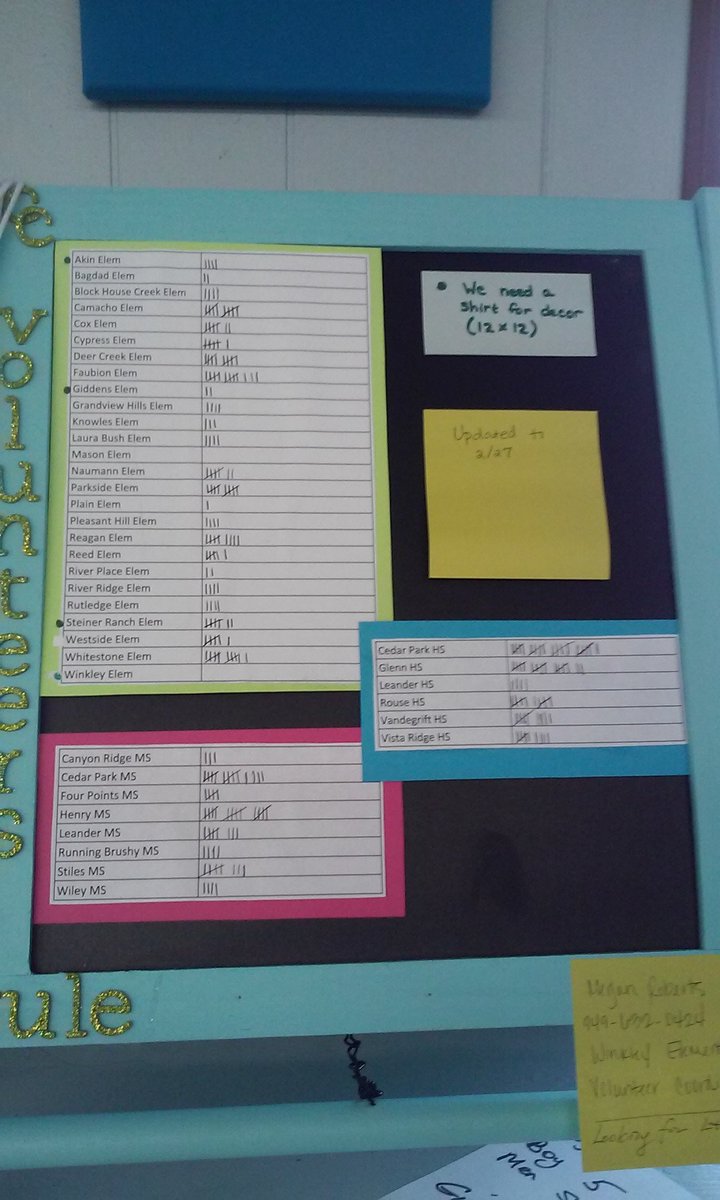 volunteers
Akin Elem
Bagdad Elem
Block House Creek Elem
Camacho Elem
Cox Elem
Cypress Elem
Deer Creek Elem
Faubion Elem
Giddens Elem
Grandview Hills Elem
Knowles Elem
Laura Bush Elem
Mason Elem
Naumann Elem
Parkside Elem
Plain Elem
Pleasant Hill Elem
Reagan Elem
Reed Elem
River Place Elem
River Ridge Elem
Rutledge Elem
Steiner Ranch Elem
Westside Elem
Whitestone Elem
Winkley Elem
• We need a
shirt for decor
(12 x 12)
Updated to
2/27
Cedar Park HS
Glenn HS
Leander HS
Rouse HS
Vandegrift HS
Vista Ridge HS
Canyon Ridge MS
Cedar Park MS
Four Points MS
Henry MS
Leander MS
Running Brushy MS
Stiles MS
Wiley MS
ule
Megan Roberts
Winkley
Volunteer
Looking for
Boy
Men